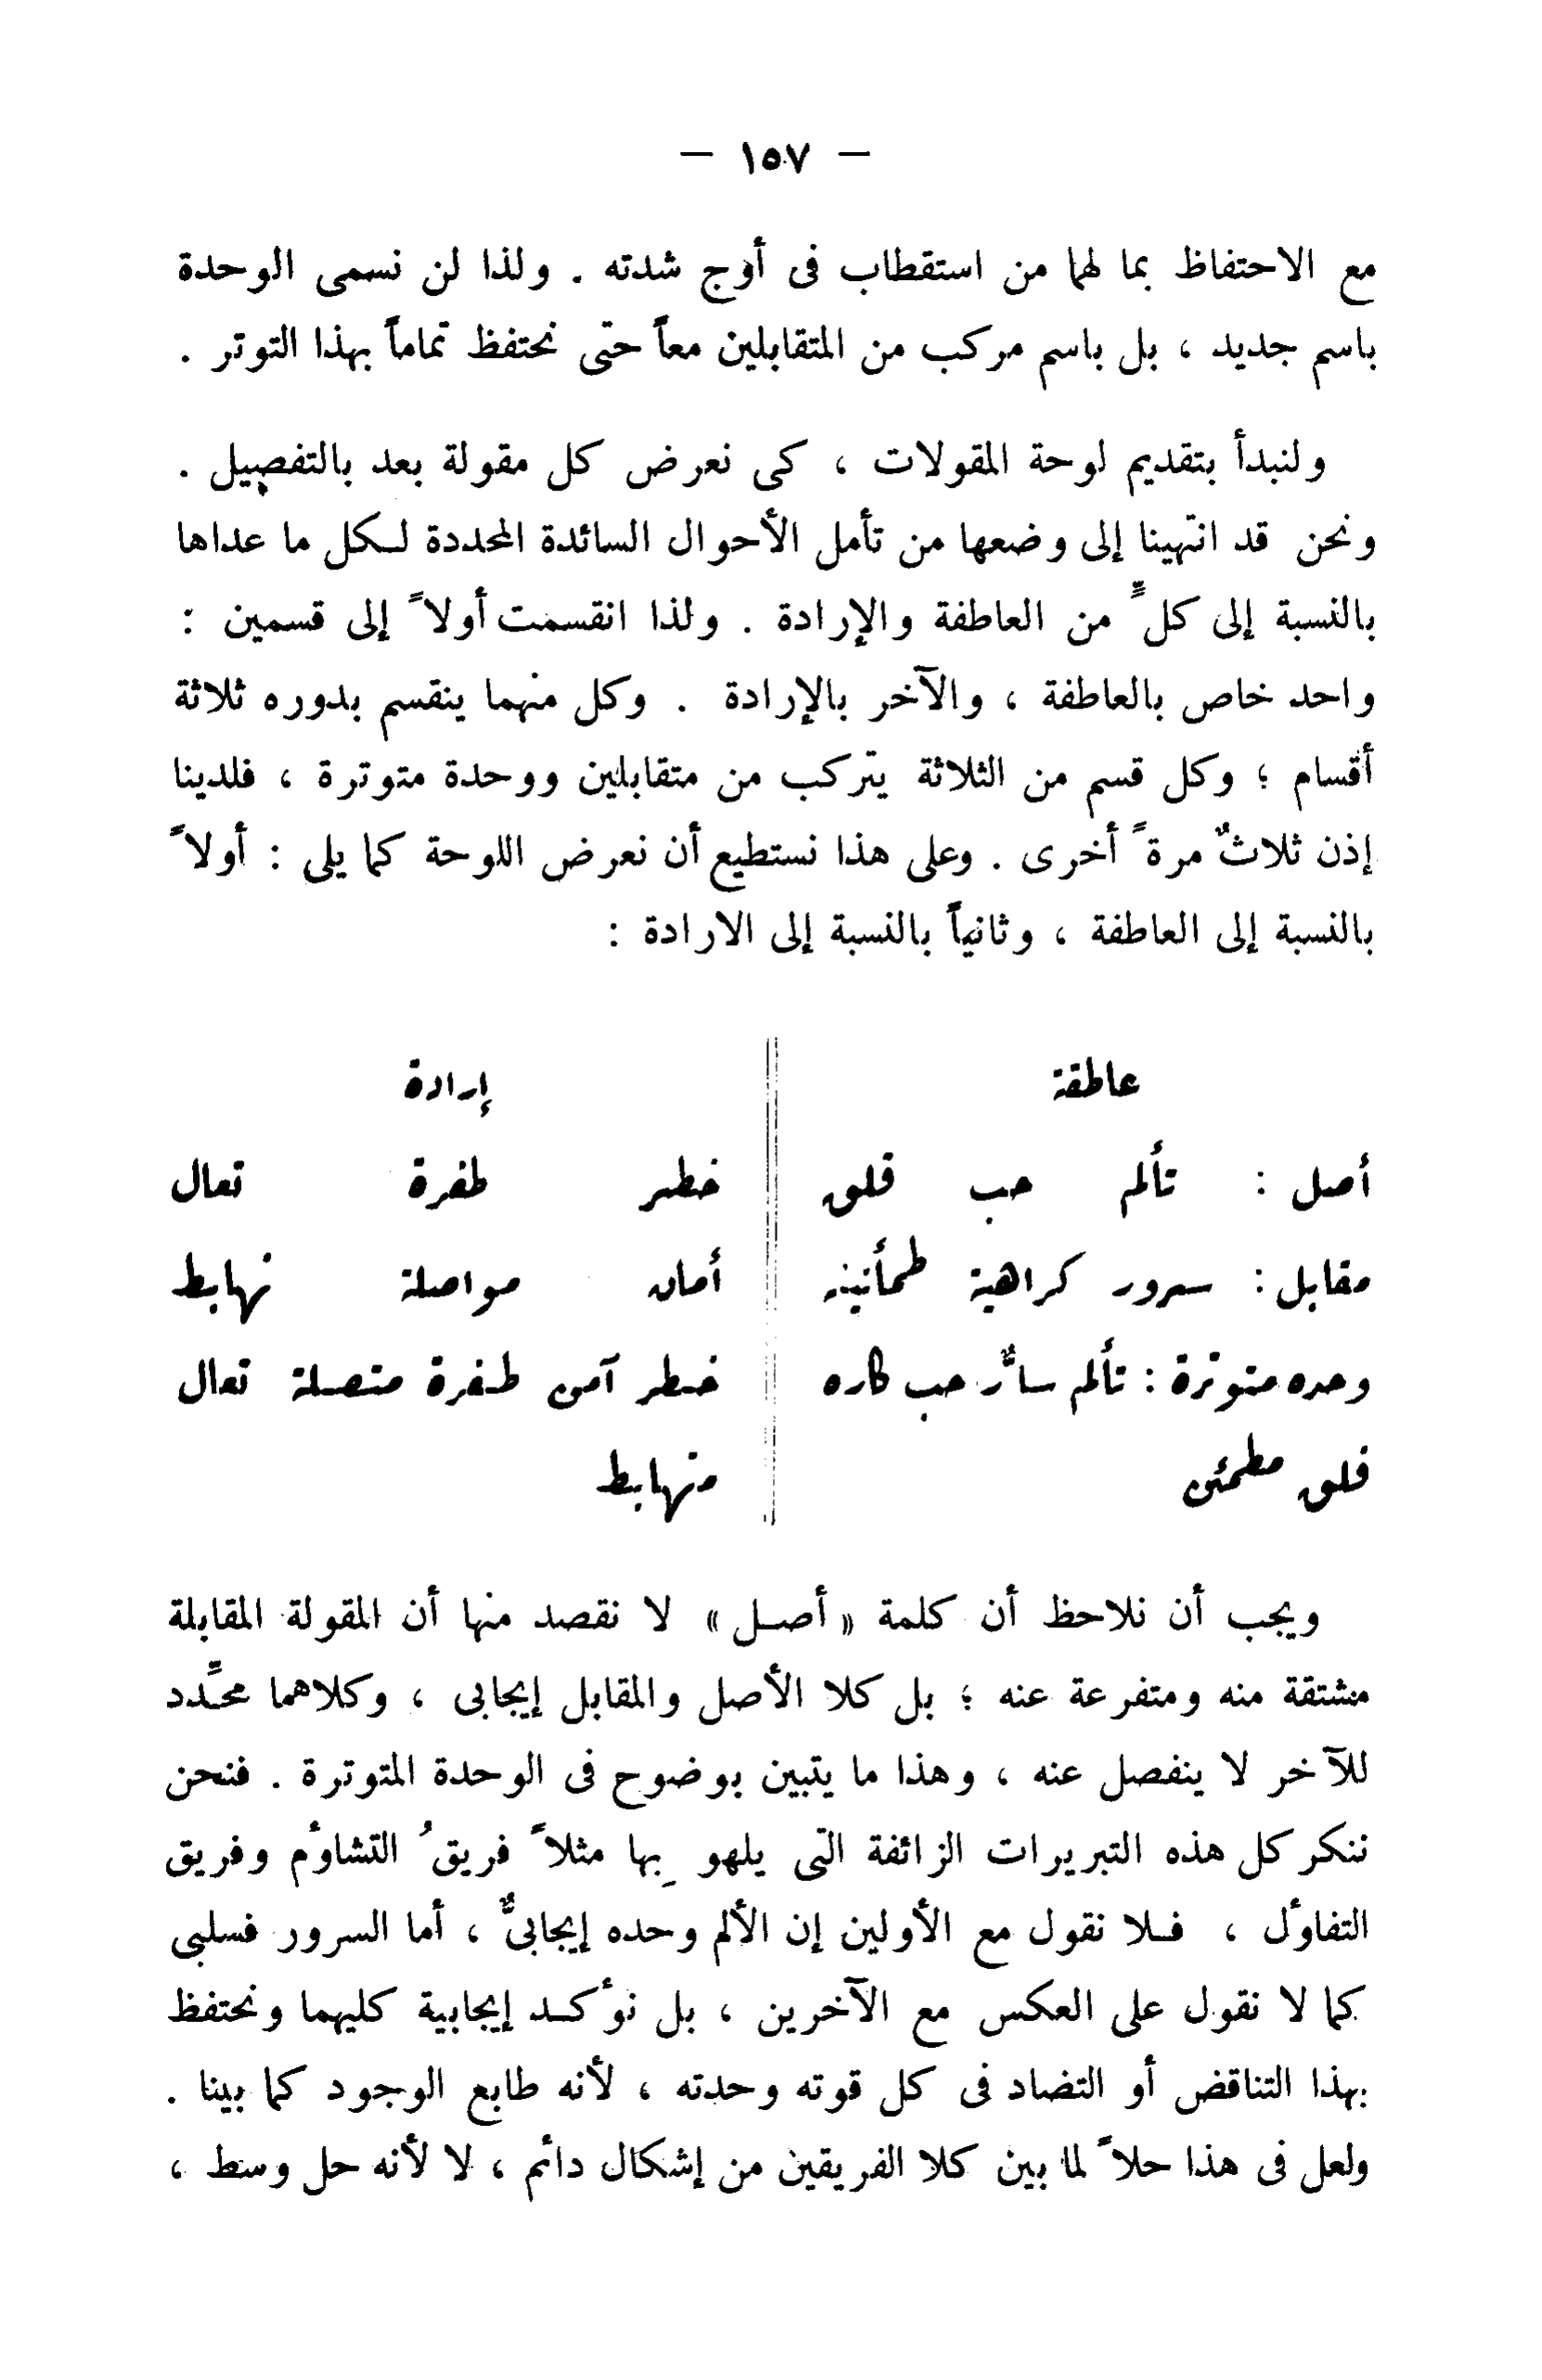 — ١٥٧ —
مع الاحتفاظ بما لهما من استقطاب فى أوج شدته . ولذا لن نسمى الوحدة
باسم جديد ، بل باسم مركب من المتقابلين معاً حتى نحتفظ تماماً بهذا التوتر .
ولنبدأ بتقديم لوحة المقولات ، كى نعرض كل مقولة بعد بالتفصيل .
ونحن قد انتهينا إلى وضعها من تأمل الأحوال السائدة المحددة لكل ما عداها
بالنسبة إلى كلٍّ من العاطفة والإرادة . ولذا انقسمت أولاً إلى قسمين :
واحد خاص بالعاطفة ، والآخر بالإرادة . وكل منهما ينقسم بدوره ثلاثة
أقسام ؛ وكل قسم من الثلاثة يتركب من متقابلين ووحدة متوترة ، فلدينا
إذن ثلاثٌ مرةً أخرى . وعلى هذا نستطيع أن نعرض اللوحة كما يلى : أولاً
بالنسبة إلى العاطفة ، وثانياً بالنسبة إلى الارادة :
عاطفة إرادة
أصل : تألم حب قلق خطر طفرة تعال
مقابل : سرور كراهية طمأنينة أمان مواصلة تهابط
وحدة متوترة : تألم سارٌّ حب كاره خطر آمن طفرة متصلة تعال
قلق مطمئن متهابط
ويجب أن نلاحظ أن كلمة « أصل » لا نقصد منها أن المقولة المقابلة
مشتقة منه ومتفرعة عنه ؛ بل كلا الأصل والمقابل إيجابى ، وكلاهما محدِّد
للآخر لا ينفصل عنه ، وهذا ما يتبين بوضوح فى الوحدة المتوترة . فنحن
ننكر كل هذه التبريرات الزائفة التى يلهو بِها مثلاً فريقُ التشاؤم وفريق
التفاؤل ، فلا نقول مع الأولين إن الألم وحده إيجابىٌّ ، أما السرور فسلبى
كما لا نقول على العكس مع الآخرين ، بل نؤكد إيجابية كليهما ونحتفظ
بهذا التناقض أو التضاد فى كل قوته وحدته ، لأنه طابع الوجود كما بينا .
ولعل فى هذا حلاً لما بين كلا الفريقين من إشكال دائم ، لا لأنه حل وسط ،